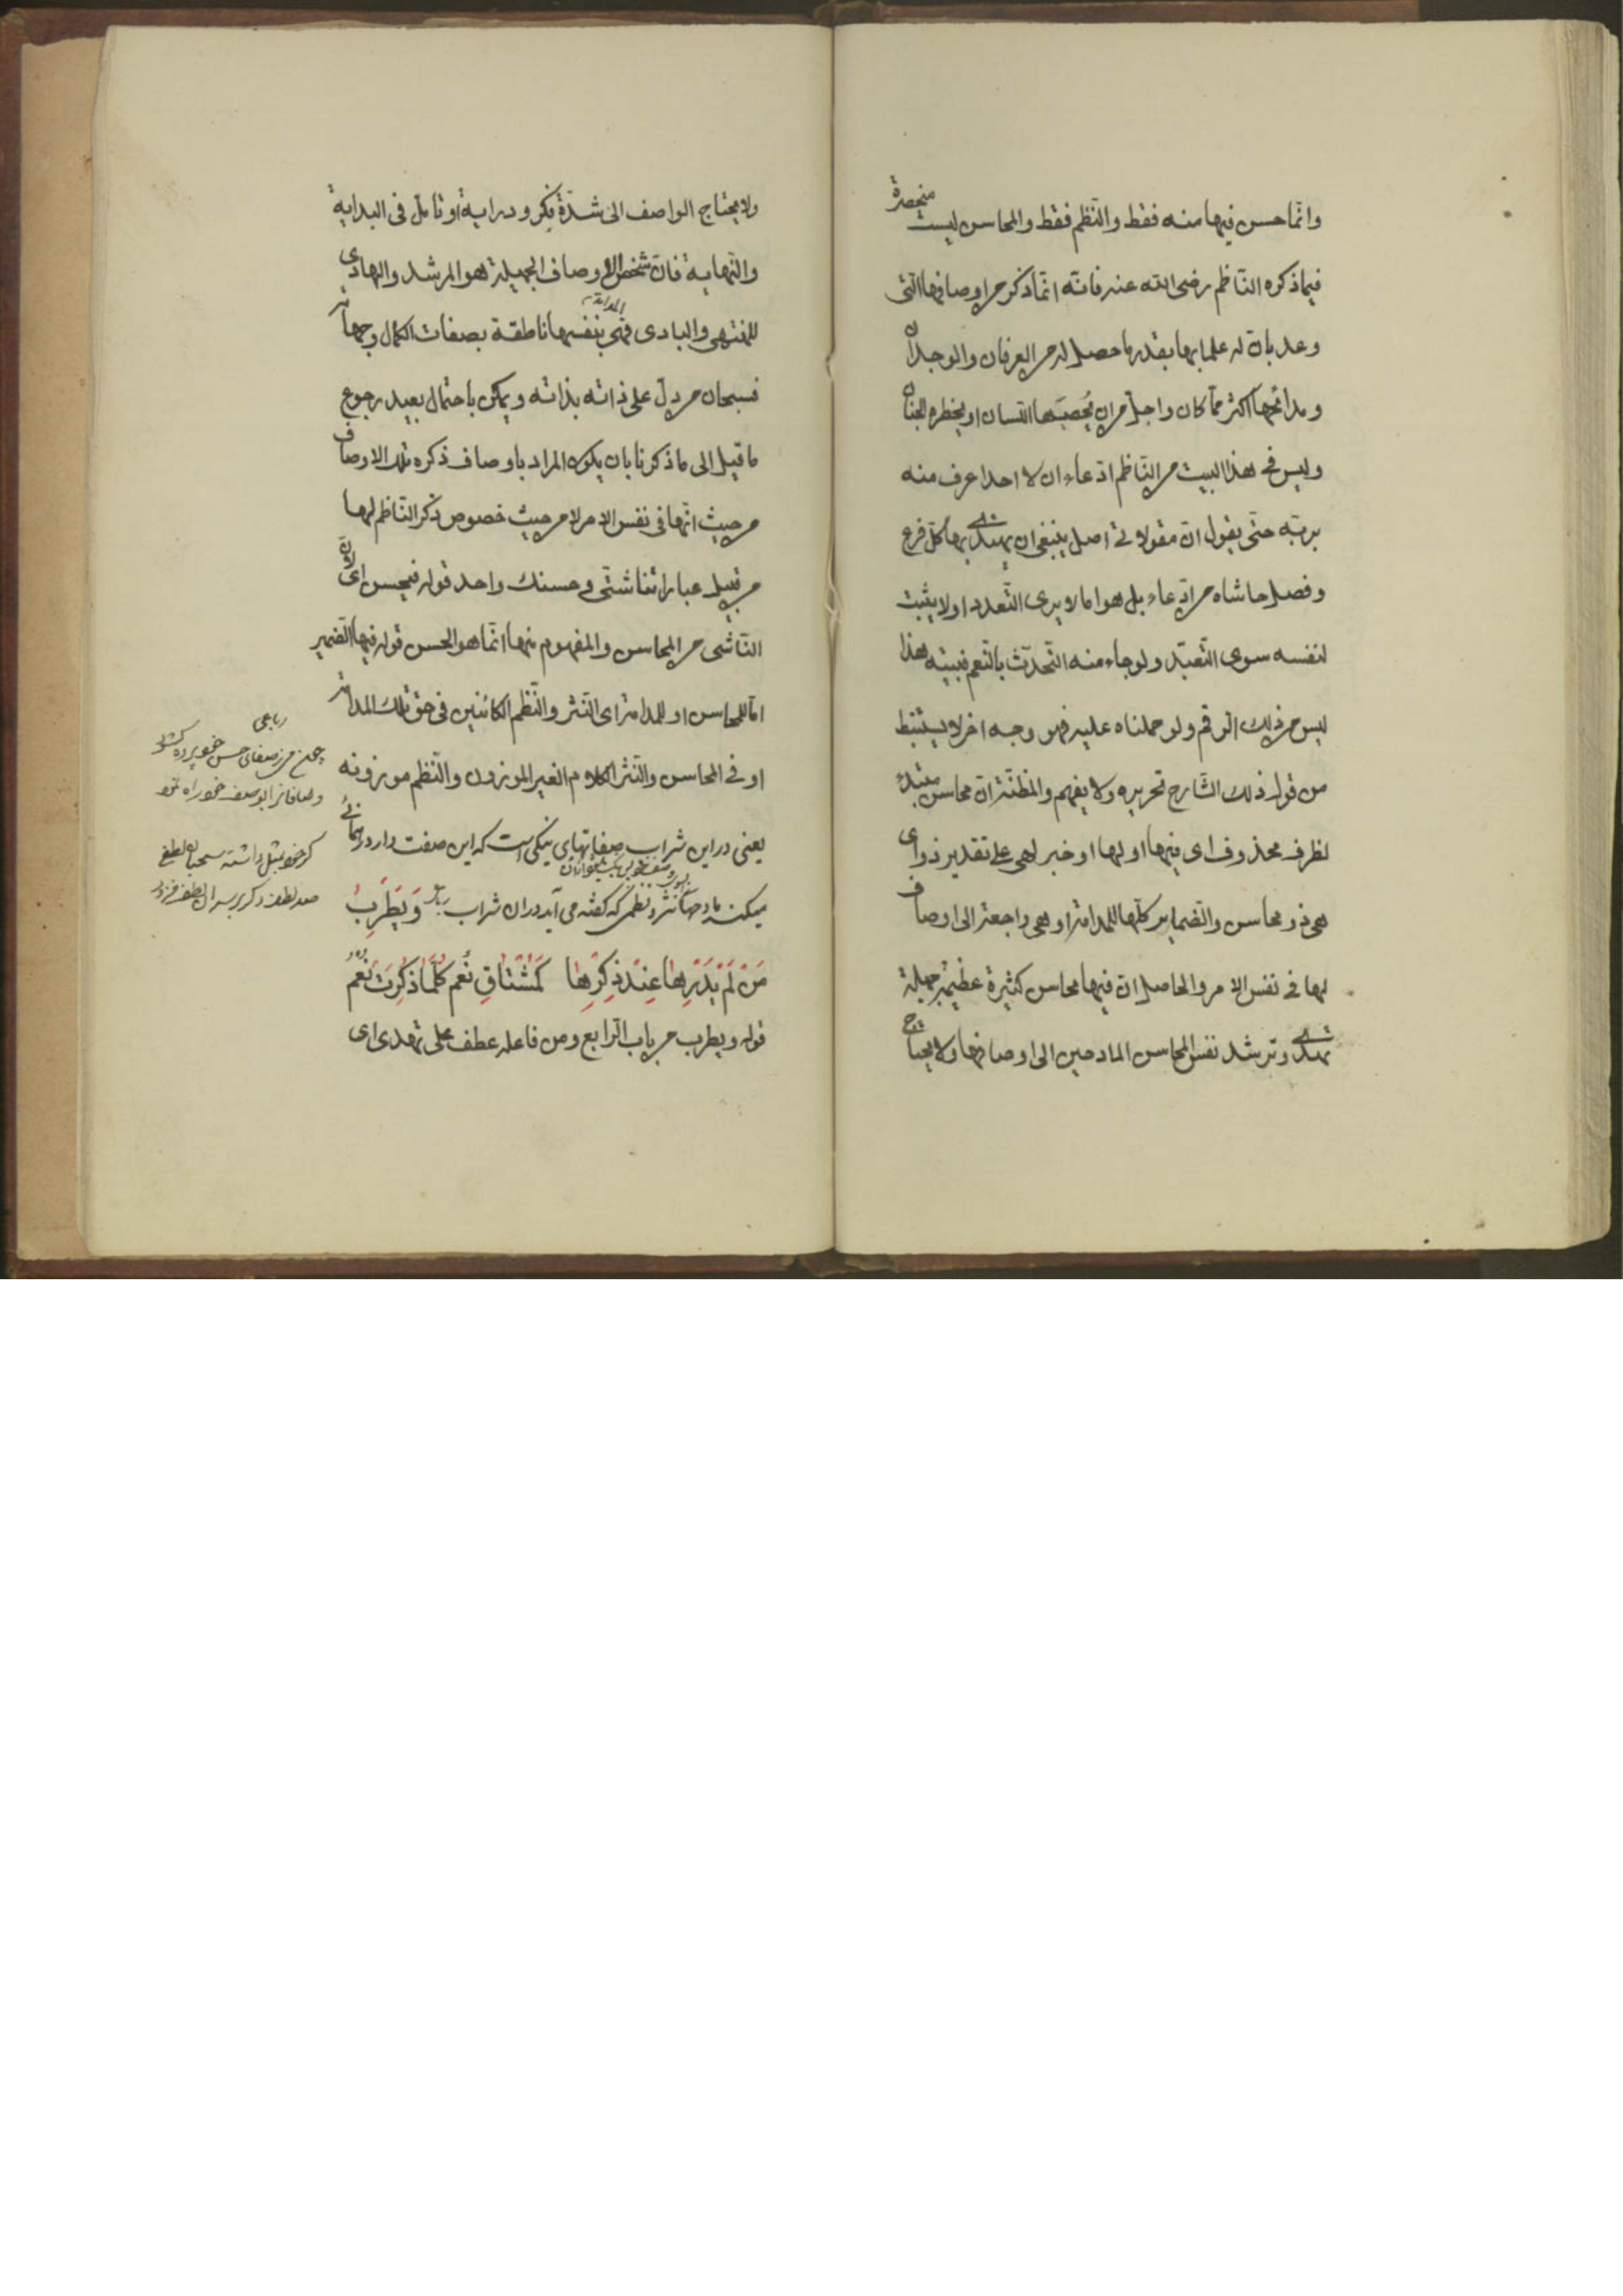 وانما حسن فيها منه فقط والنظم فقط والمحاسن ليست منحصرة
فيما ذكره الناظم رضى الله عنه فانه انما ذكر من اوصافها التى
وعد بان له علما بها بقدر ما حصل له من العرفان والوجدان
ومدائحها اكثر مما كان واجل من ان يحصيها اللسان او يخطره الجنان
وليس فى هذا البيت من الناظم ادعاء ان لا احدا عرف منه
بربه حتى يقول ان مقولاته اصل ينبغى ان يهتدى بها كل فرع
وفصل حاشاه من ادعاء بل هو اما لا يرى التعدد او لا يثبت
لنفسه سوى التعبد ولو جاء منه التحدث بالنعم فبيته هذا
ليس من ذلك الرقم ولو حملناه عليه فهو وجه اخر لا يستنبط
من قوله ذلك الشارح تحريره ولا يفهم والمظنة ان محاسن مبتدء
لظرف محذوف اى فيها او لها او خبر لهى على تقدير ذو اى
هى ذو محاسن والضماير كلها للمدامة او هى راجعة الى اوصاف
لها فى نفس الامر والحاصل ان فيها محاسن كثيرة عظيمة جميلة
تهدى وترشد نفس المحاسن المادحين الى اوصافها ولا يحتاج
ولا يحتاج الواصف الى شدة فكر ودراية او تامل فى البداية
والنهاية فان شخص الاوصاف الجميلة هو المرشد والهادى
للمنتهى والبادى فهى بنفسها ناطقة بصفات الكمال وجهاته
المدامة
فسبحان من دل على ذاته بذاته ويمكن باحتمال بعيد رجوع
ما قيل الى ما ذكرنا بان يكون المراد باوصاف ذكره تلك الاوصاف
من حيث انها فى نفس الامر لا من حيث خصوص ذكر الناظم لها
من قبيل عباراتنا شتى وحسنك واحد قوله فيحسن اى
الناشى من المحاسن والمفهوم منها انما هو الحسن قوله فيها الضمير
اما للمحاسن او للمدامة اى النثر والنظم الكائنين فى حق تلك المدامة
او فى المحاسن والنثر الكلام الغير الموزون والنظم موزونه
يعنى در اين شراب صفاتهاى نيكى است كه اين صفت دارد رهنمائى
ميكند مادحها نثر ونظمى كه كفته مى آيد در ان شراب وَيَطْرَبُ
مَنْ لَمْ يَدْرِهَا عِنْدَ ذِكْرِهَا كَمُشْتَاقِ نُعْمٍ كُلَّمَا ذُكِرَتْ نُعْمُ
قوله ويطرب من باب الرابع ومن فاعله عطف على تهدى اى
رباعى